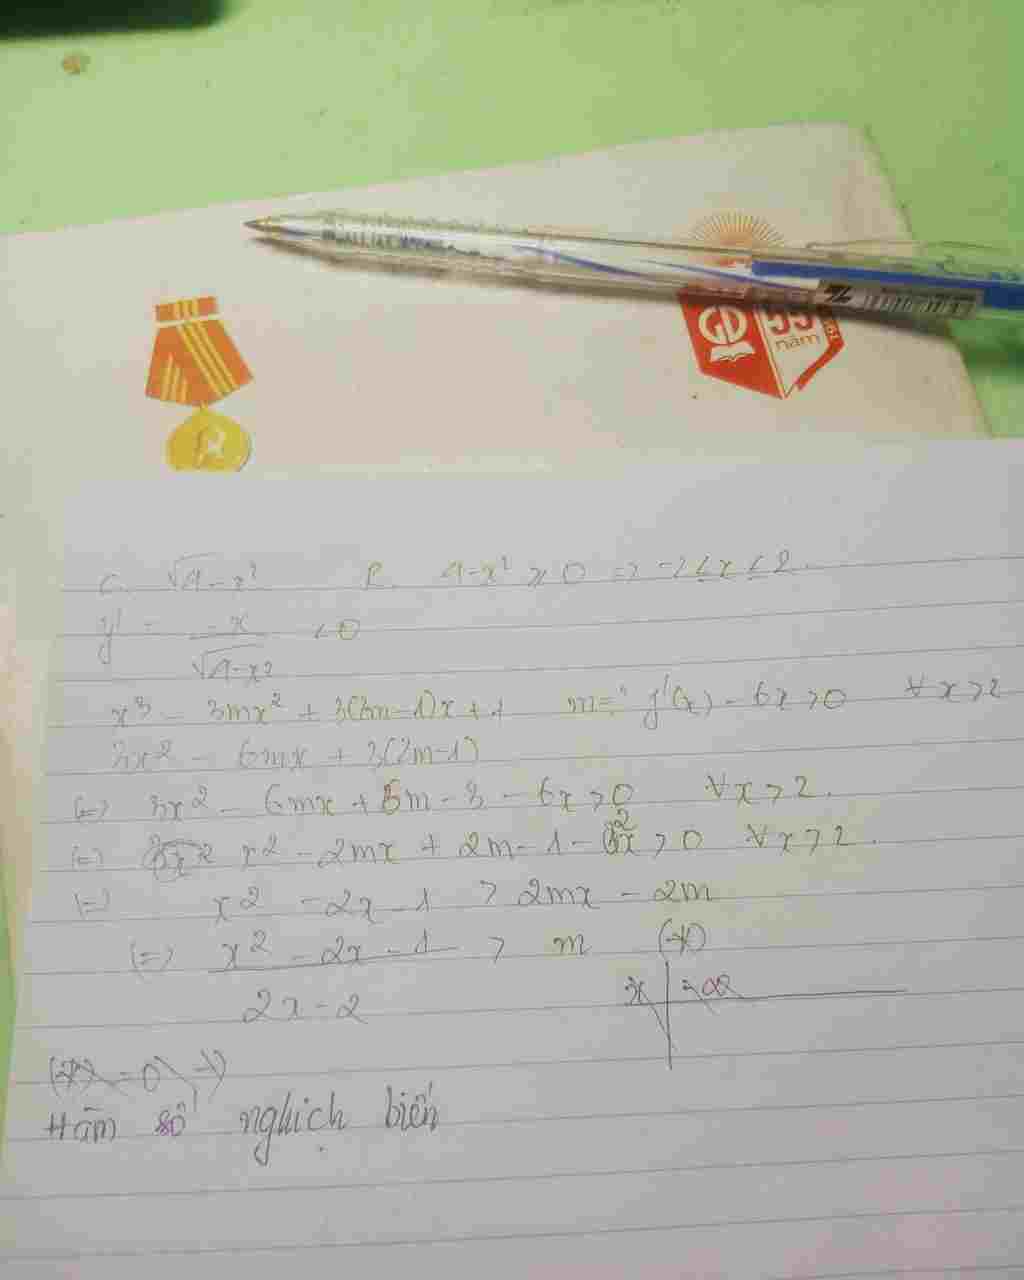 GD 55
năm
C. √4-x² 4-x² ≥ 0 => -2 ≤ x ≤ 2.
y' = -x/√4-x² < 0
x³ - 3mx² + 3(2m-1)x + 1 m=? y'(x) - 6x > 0 ∀x>2
3x² - 6mx + 3(2m-1)
(=) 3x² - 6mx + 6m - 3 - 6x > 0 ∀x > 2.
(=) x² - 2mx + 2m - 1 - 2x > 0 ∀x > 2.
(=) x² - 2x - 1 > 2mx - 2m
(=) x² - 2x - 1 / 2x - 2 > m (*)
x
Hàm số nghịch biến